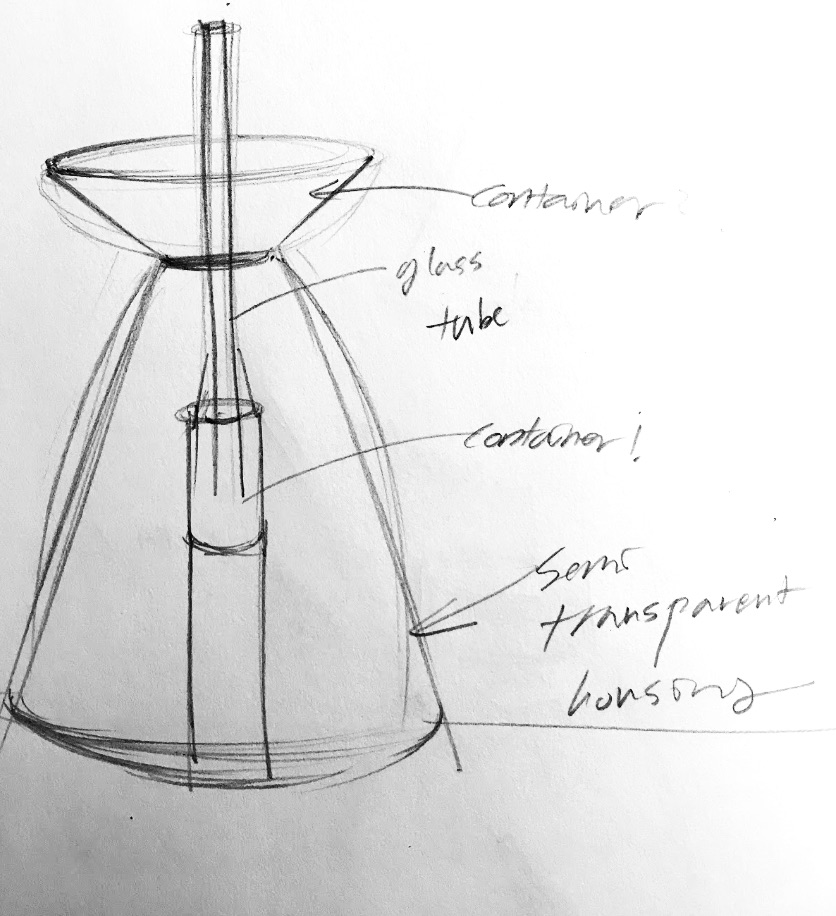 container
glass
tube
container!
Semi
transparent
housing